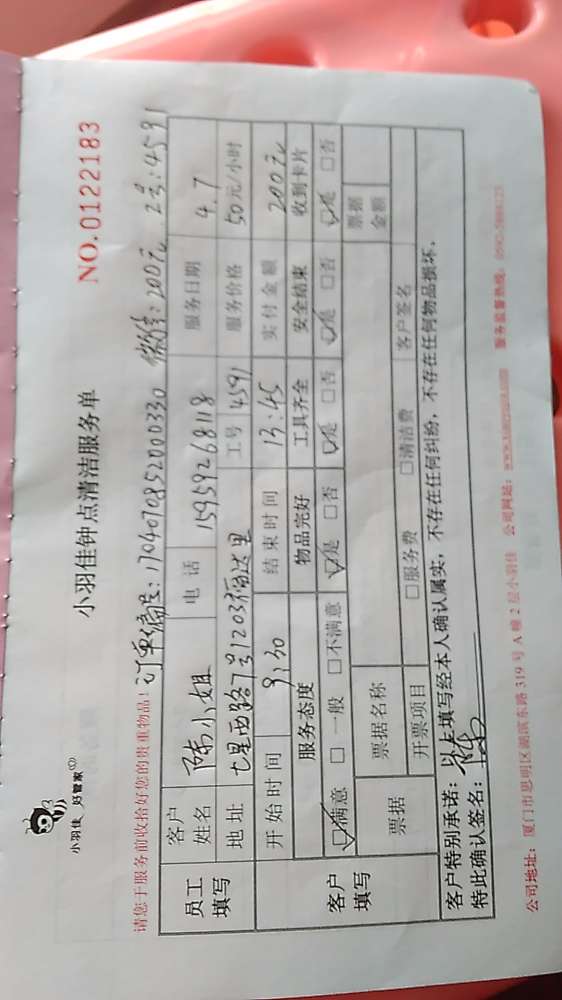 小羽佳 好管家
小羽佳钟点清洁服务单
NO.0122183
请您于服务前收拾好您的贵重物品！
订单编号：170407085200033O 微信：200元 工号：4591
员工填写
客户姓名 陈小姐 电话 15959268118 服务日期 4.7
地址 七星西路7号1203 工号 4591 服务价格 50元/小时
客户填写
开始时间 9:30 结束时间 13:45 实付金额 200元
服务态度 物品完好 工具齐全 安全结束 收到卡片
☑满意 □一般 □不满意 ☑是 □否 ☑是 □否 ☑是 □否 ☑是 □否
票据 票据名称 票据金额
开票项目 □服务费 □清洁费 客户签名
客户特别承诺：以上填写经本人确认属实，不存在任何纠纷，不存在任何物品损坏，
特此确认签名：陈
公司地址：厦门市思明区湖滨东路319号A幢2层小羽佳 公司网站： 服务监督热线：